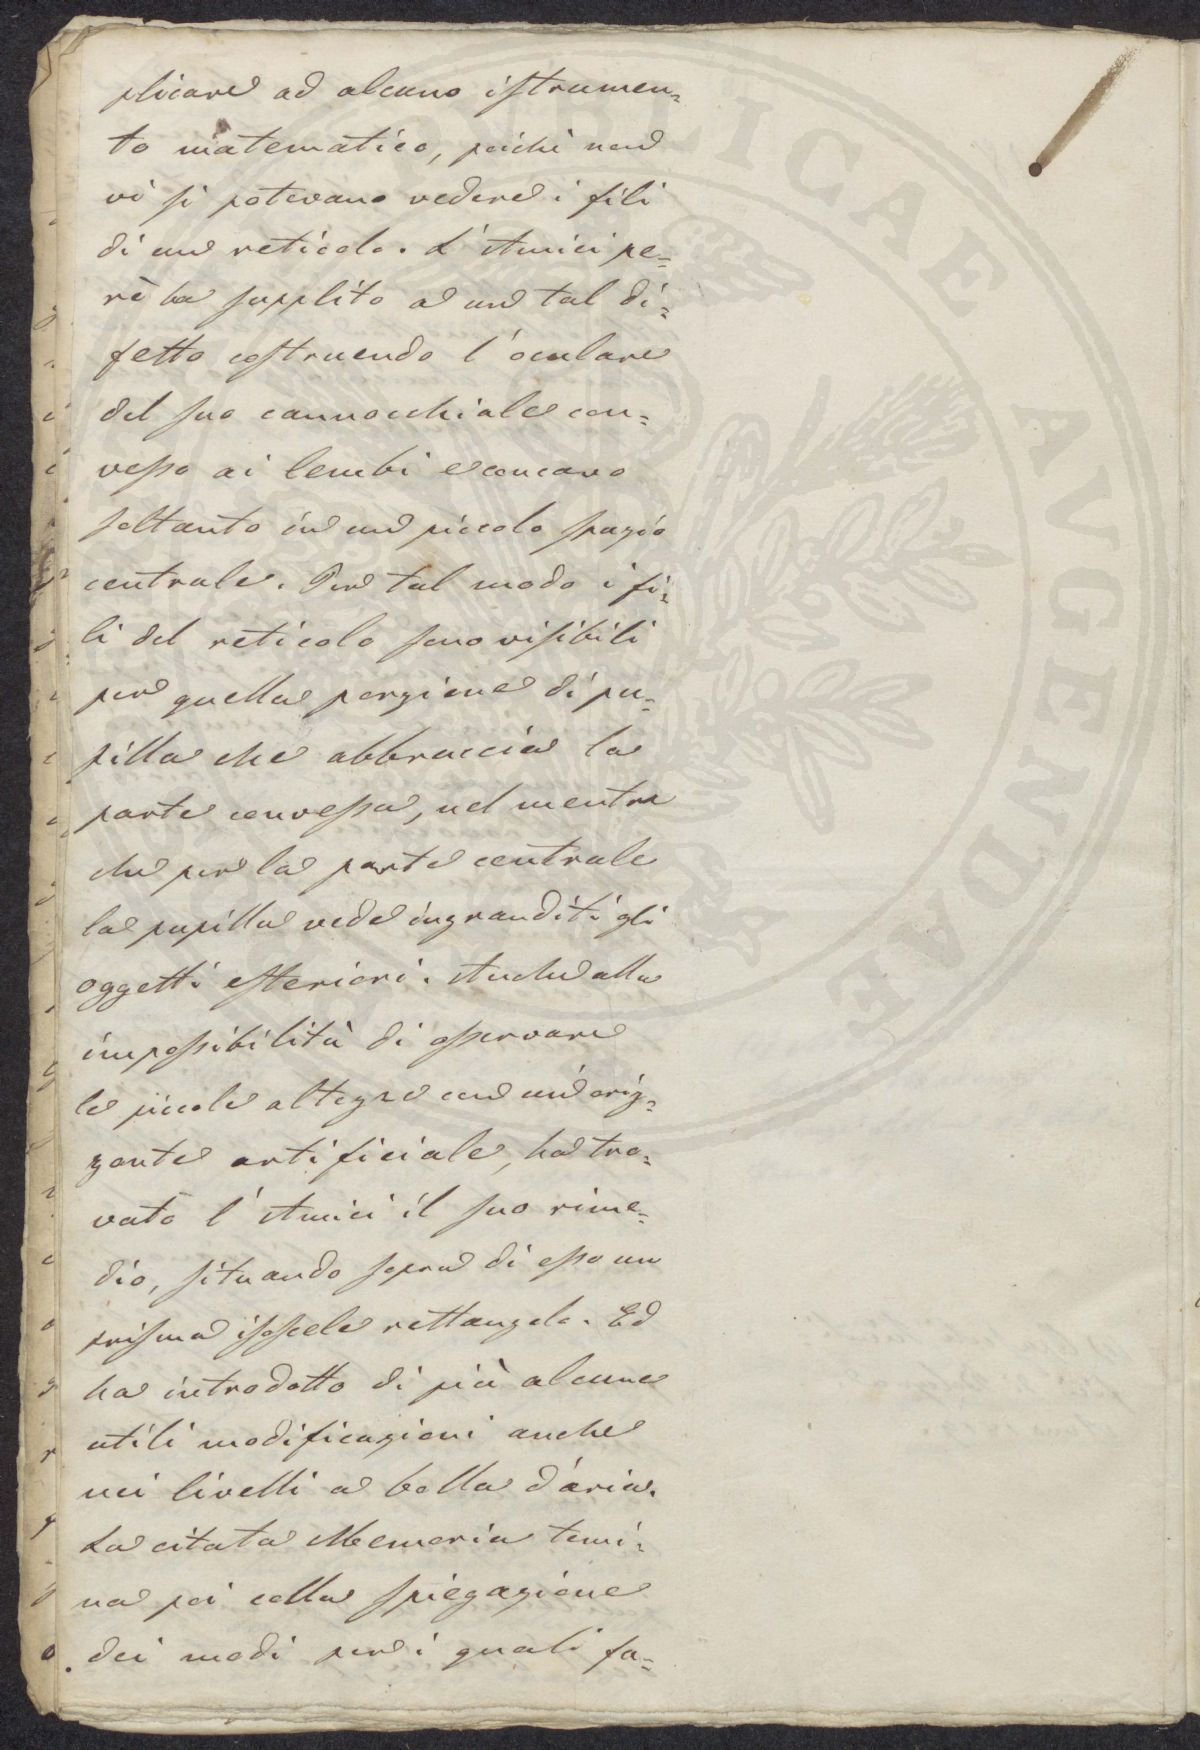 plicare ad alcuno istrumen=
to matematico, poichè non
vi si potevano vedere i fili
di un reticolo. L'Amici pe=
rò ha supplito a un tal di=
fetto costruendo l'oculare
del suo cannocchiale con=
vesso ai lembi e concavo
soltanto in un piccolo spazio
centrale. Per tal modo i fi=
li del reticolo sono visibili
per quella porzione di pu=
pilla che abbraccia la
parte convessa, nel mentre
che per la parte centrale
la pupilla vede ingranditi gli
oggetti esteriori. Anche alla
impossibilità di osservare
le piccole altezze con un'oriz=
zonte artificiale, ha tro=
vato l'Amici il suo rime=
dio, situando sopra di esso un
prisma isoscele rettangolo. Ed
ha introdotto di più alcune
utili modificazioni anche
nei livelli a bolla d'aria.
La citata Memoria temi=
na poi colla spiegazione
dei modi per i quali fa=
PUBLICAE AVGENDAE